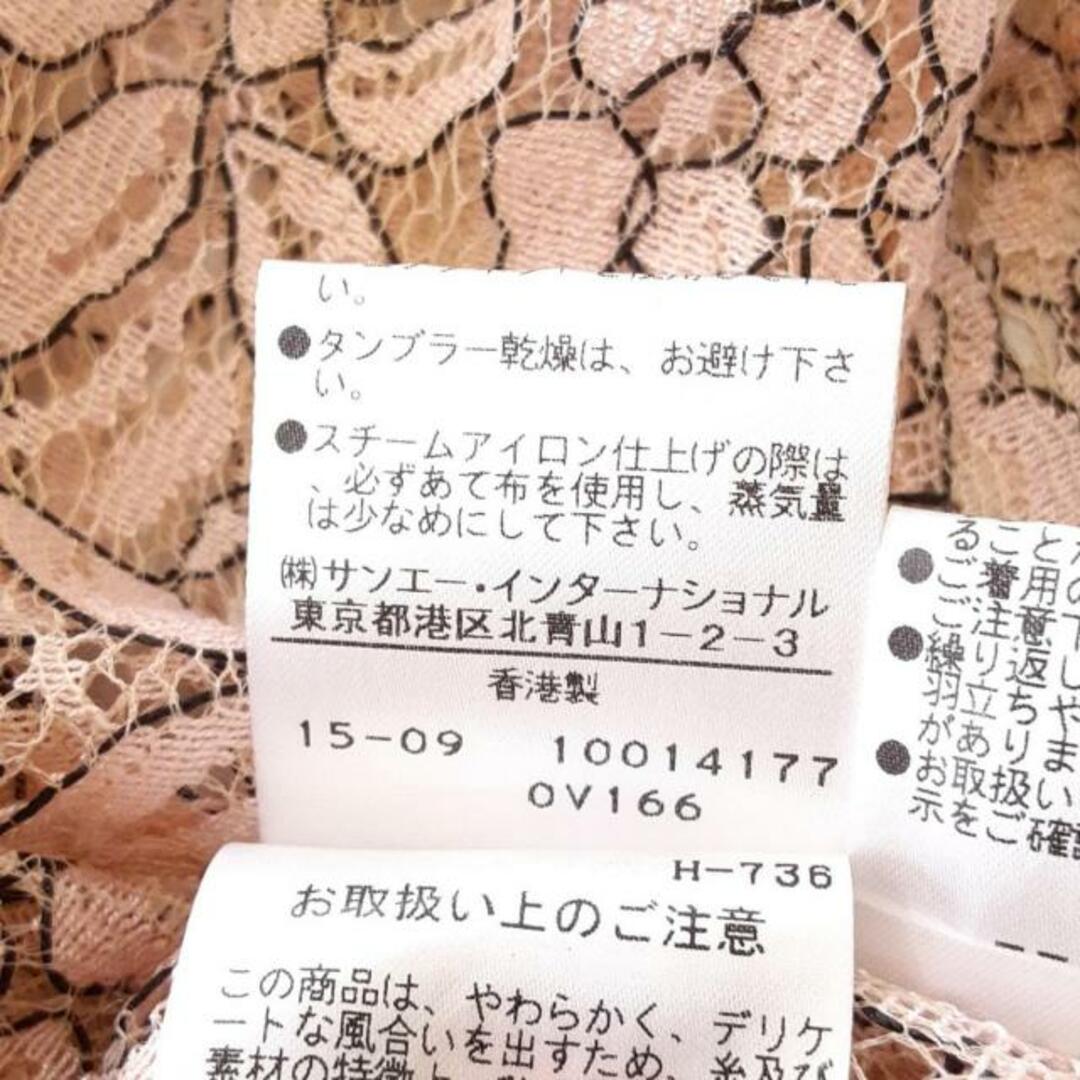 い。
●タンブラー乾燥は、お避け下さ
い。
●スチームアイロン仕上げの際は
、必ずあて布を使用し、蒸気量
は少なめにして下さい。
㈱サンエー・インターナショナル
東京都港区北青山1-2-3
香港製
15-09 10014177
0V166
ること
●ご着用の
ご注意下
●繰り返し
羽立ちや
があります
●お取扱い
示をご確認
H-736
お取扱い上のご注意
この商品は、やわらかく、デリケ
ートな風合いを出すため、糸及び
素材の特徴